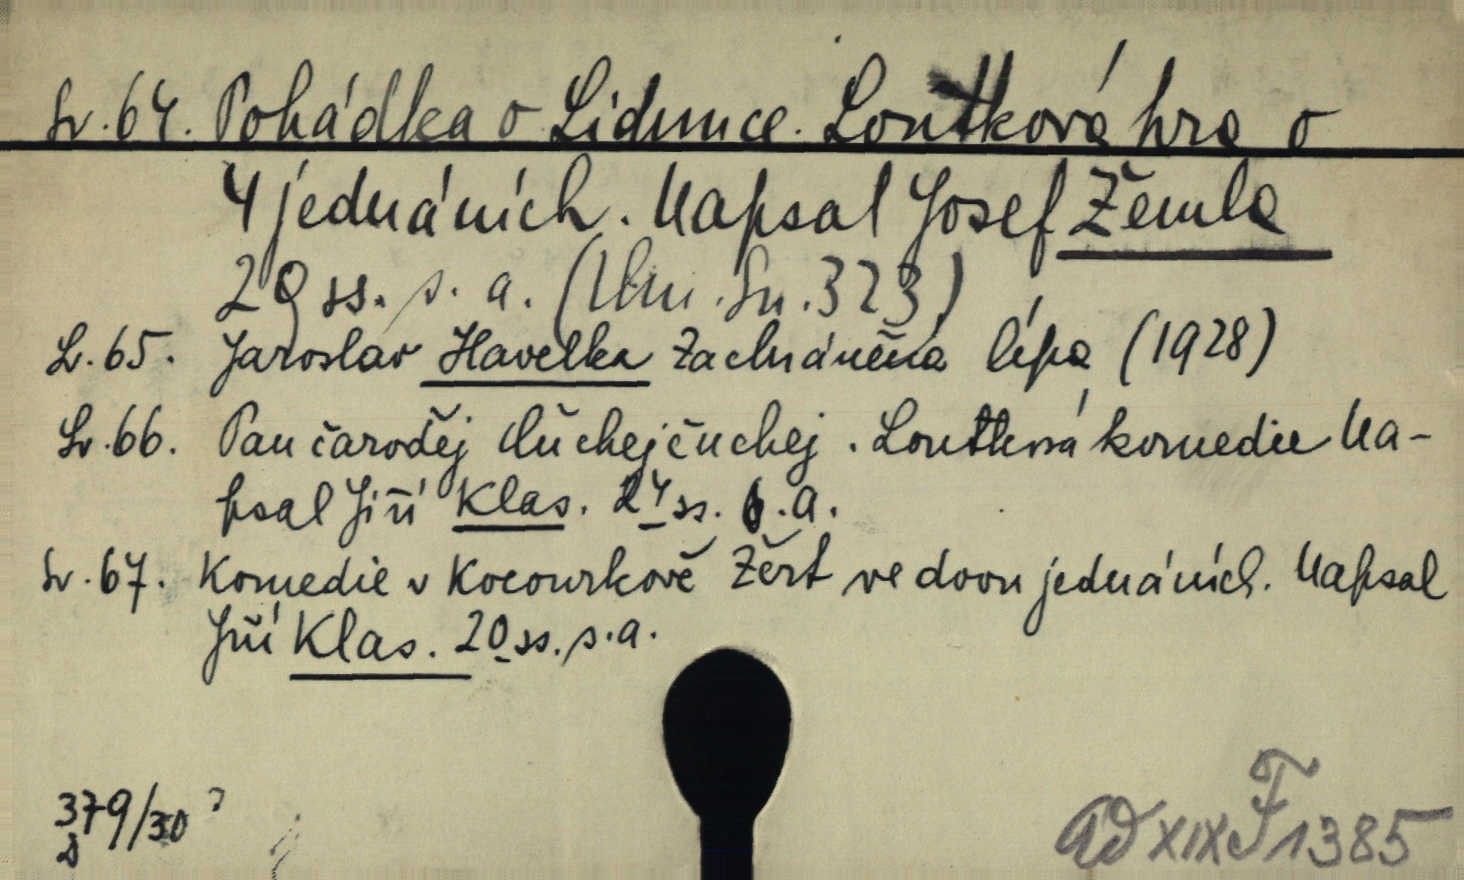 Sv. 64. Pohádka o Lidunce. Loutková hra o
4 jednáních. Napsal Josef Žemla
20 ss. s. a. (Um. Sn. 323)
Sv. 65. Jaroslav Havelka Zachráněná lípa (1928)
Sv. 66. Pan čaroděj čuchejčuchej. Loutková komedie Na-
psal Jiří Klas. 24 ss. s. a.
Sv. 67. Komedie v Kocourkově Žert ve dvou jednáních. Napsal
Jiří Klas. 20 ss. s. a.
379/30
D
ad XIX F 1385